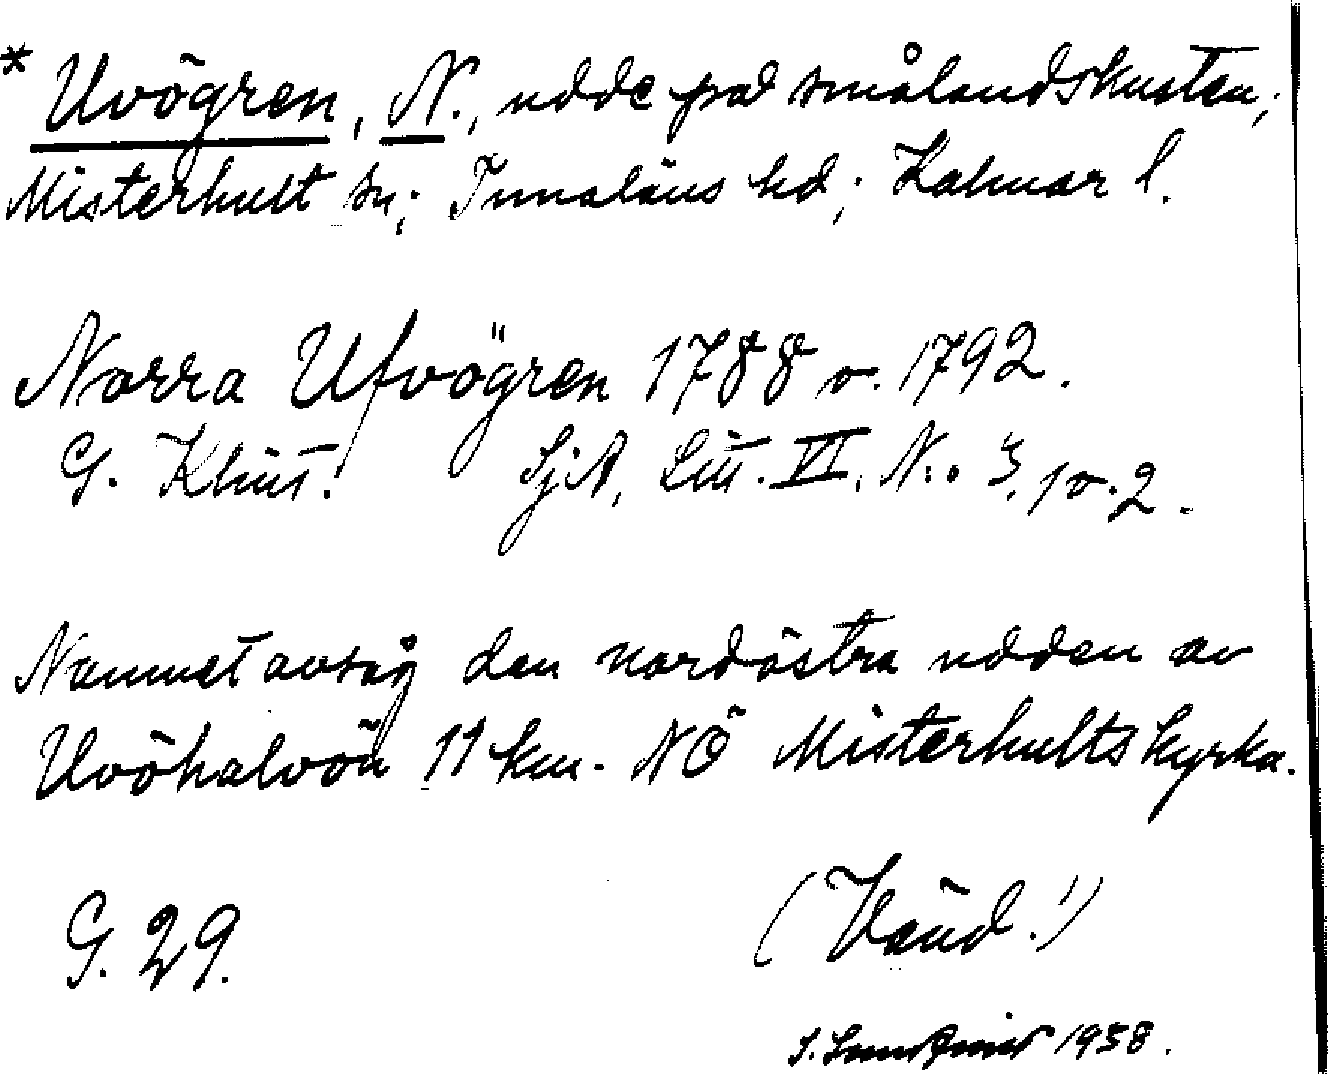 * Uvögren, N., udde på smålandskusten,
Misterhult sn; Tunaläns hd; Kalmar l.
Norra Ufvögren 1788 o. 1792.
G. Klint. SjA, Litt. VI, N:o 3, 1 o. 2.
Namnet avsåg den nordöstra udden av
Uvöhalvön 11 km. NÖ Misterhults kyrka.
G. 29. (Vänd!)
1938.